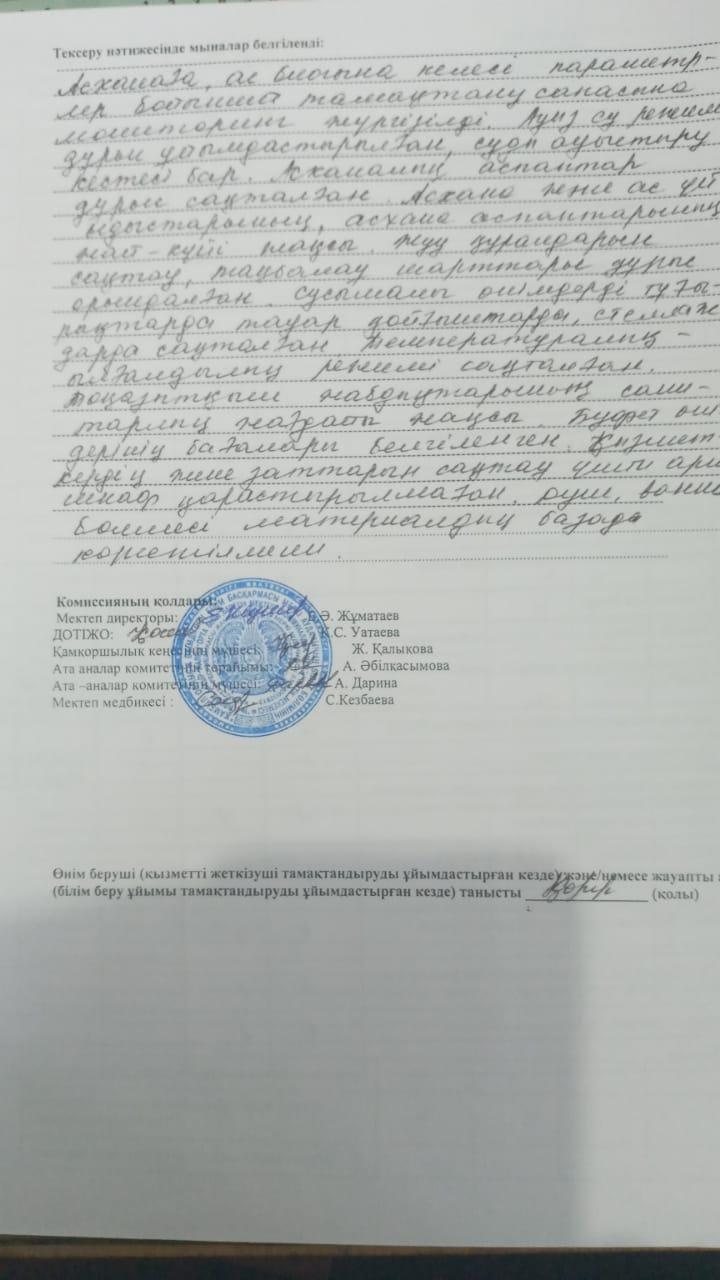 Тексеру нәтижесінде мыналар белгіленді:
Асханаға, ас блогына келесі параметр-
лер бойынша тамақтану сапасына
мониторинг жүргізілді. Ауыз су режимі
дұрыс ұйымдастырылған, суды ауыстыру
кестесі бар. Асханалық аспаптар
дұрыс сақталған. Асхана және ас үй
ыдыстарының, асхана аспаптарының
жай-күйі жақсы. Жуу құралдарын
сақтау, таңбалау шарттары дұрыс
орындалған. Сусымалы өнімдерді тұғы-
рықтарда тауар қойғыштарда, стеллаж
дарда сақталған температуралық -
ылғалдылық режимі сақталған.
Тоңазытқыш жабдықтарының сани-
тарлық жағдайы жақсы. Буфет өнім
дерінің бағалары белгіленген. Қызмет
кердің жеке заттарын сақтау үшін
шкаф қарастырылмаған, душ, ванна
бөлмесі материалдық базада
көрсетілмеген.
Комиссияның қолдары:
Мектеп директоры: Ә. Жұматаев
ДОТІЖО: К.С. Уатаева
Қамқоршылық кеңесінің мүшесі: Ж. Қалыкова
Ата аналар комитетінің төрайымы: А. Әбілқасымова
Ата –аналар комитетінің мүшесі: А. Дарина
Мектеп медбикесі : С.Кезбаева
Өнім беруші (қызметті жеткізуші тамақтандыруды ұйымдастырған кезде) және/немесе жауапты
(білім беру ұйымы тамақтандыруды ұйымдастырған кезде) танысты (қолы)